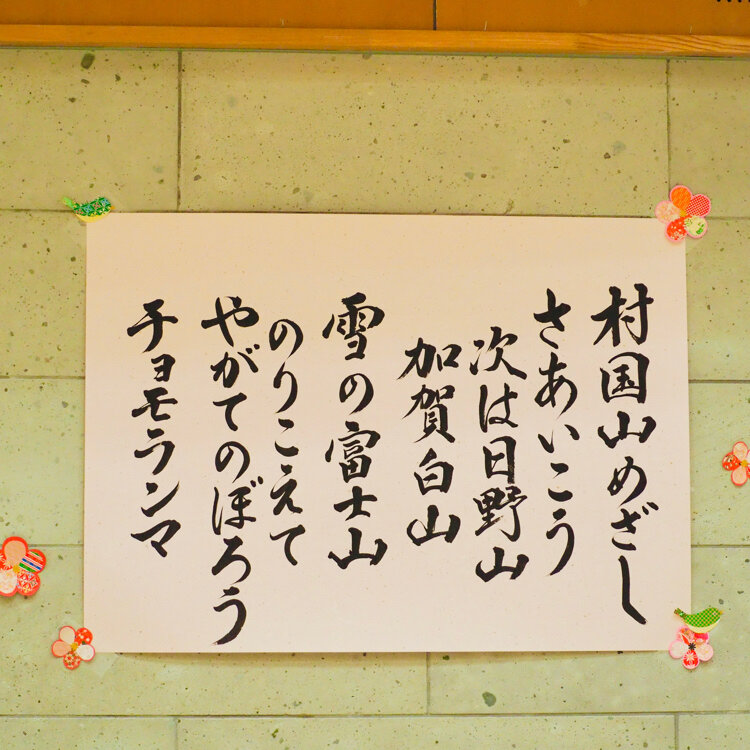 村国山めざし
さあいこう
次は日野山
加賀白山
雪の富士山
のりこえて
やがてのぼろう
チョモランマ